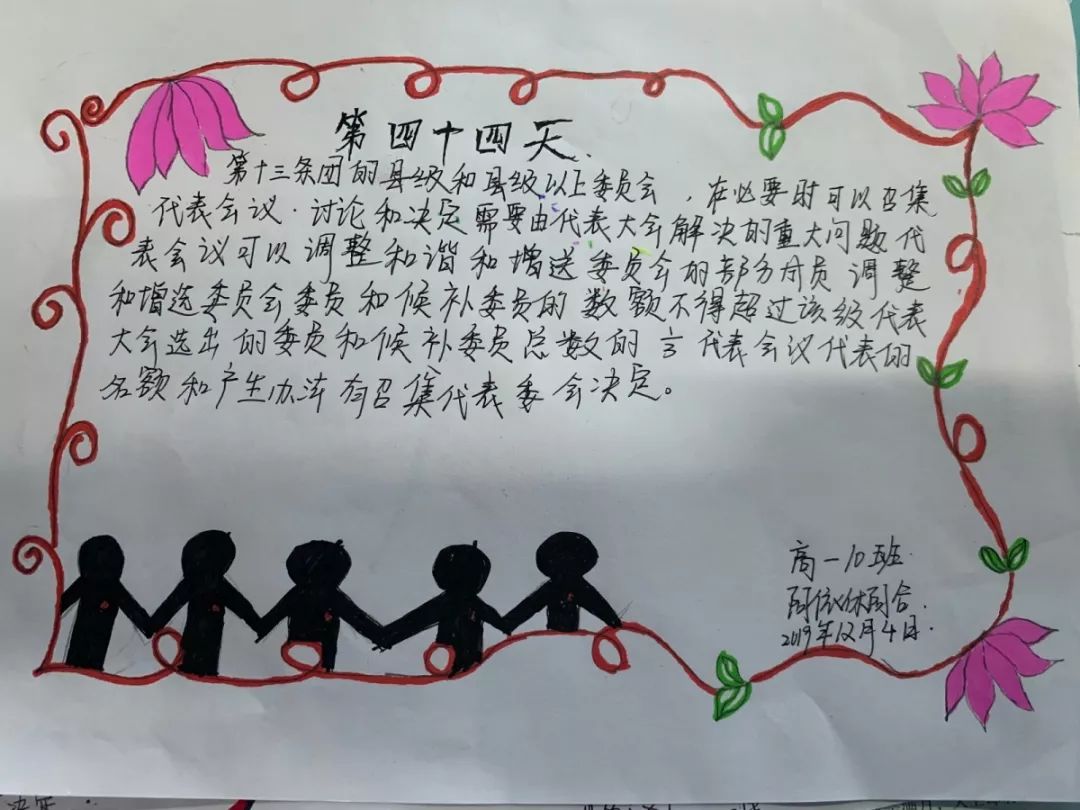 第四十四天.
第十三条团的县级和县级以上委员会,在必要时可以召集
代表会议.讨论和决定需要由代表大会解决的重大问题代
表会议可以调整和谐和增选委员会的部分成员 调整
和增选委员会委员和候补委员的数额不得超过该级代表
大会选出的委员和候补委员总数的 代表会议代表的
名额和产生办法有召集代表委会决定。
高一10班
2019年12月4日.